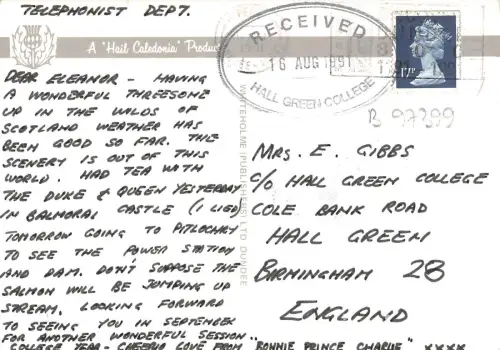 TELEPHONIST DEPT.
A 'Hail Caledonia' Product
RECEIVED
16 AUG 1991
HALL GREEN COLLEGE
17P
B 97399
DEAR ELEANOR - HAVING
A WONDERFUL THREESOME
UP IN THE WILDS OF
SCOTLAND WEATHER HAS
BEEN GOOD SO FAR. THE
SCENERY IS OUT OF THIS
WORLD. HAD TEA WITH
THE DUKE & QUEEN YESTERDAY
IN BALMORAL CASTLE (I LIED)
TOMORROW GOING TO PITLOCHRY
TO SEE THE POWER STATION
AND DAM. DON'T SUPPOSE THE
SALMON WILL BE JUMPING UP
STREAM, LOOKING FORWARD
TO SEEING YOU IN SEPTEMBER
FOR ANOTHER WONDERFUL SESSION
COLLEGE YEAR - CHEERIO LOVE FROM "BONNIE PRINCE CHARLIE" XXXX
WHITEHOLME (PUBLISHERS) LTD. DUNDEE
MRS. E. GIBBS
C/O HALL GREEN COLLEGE
COLE BANK ROAD
HALL GREEN
BIRMINGHAM 28
ENGLAND